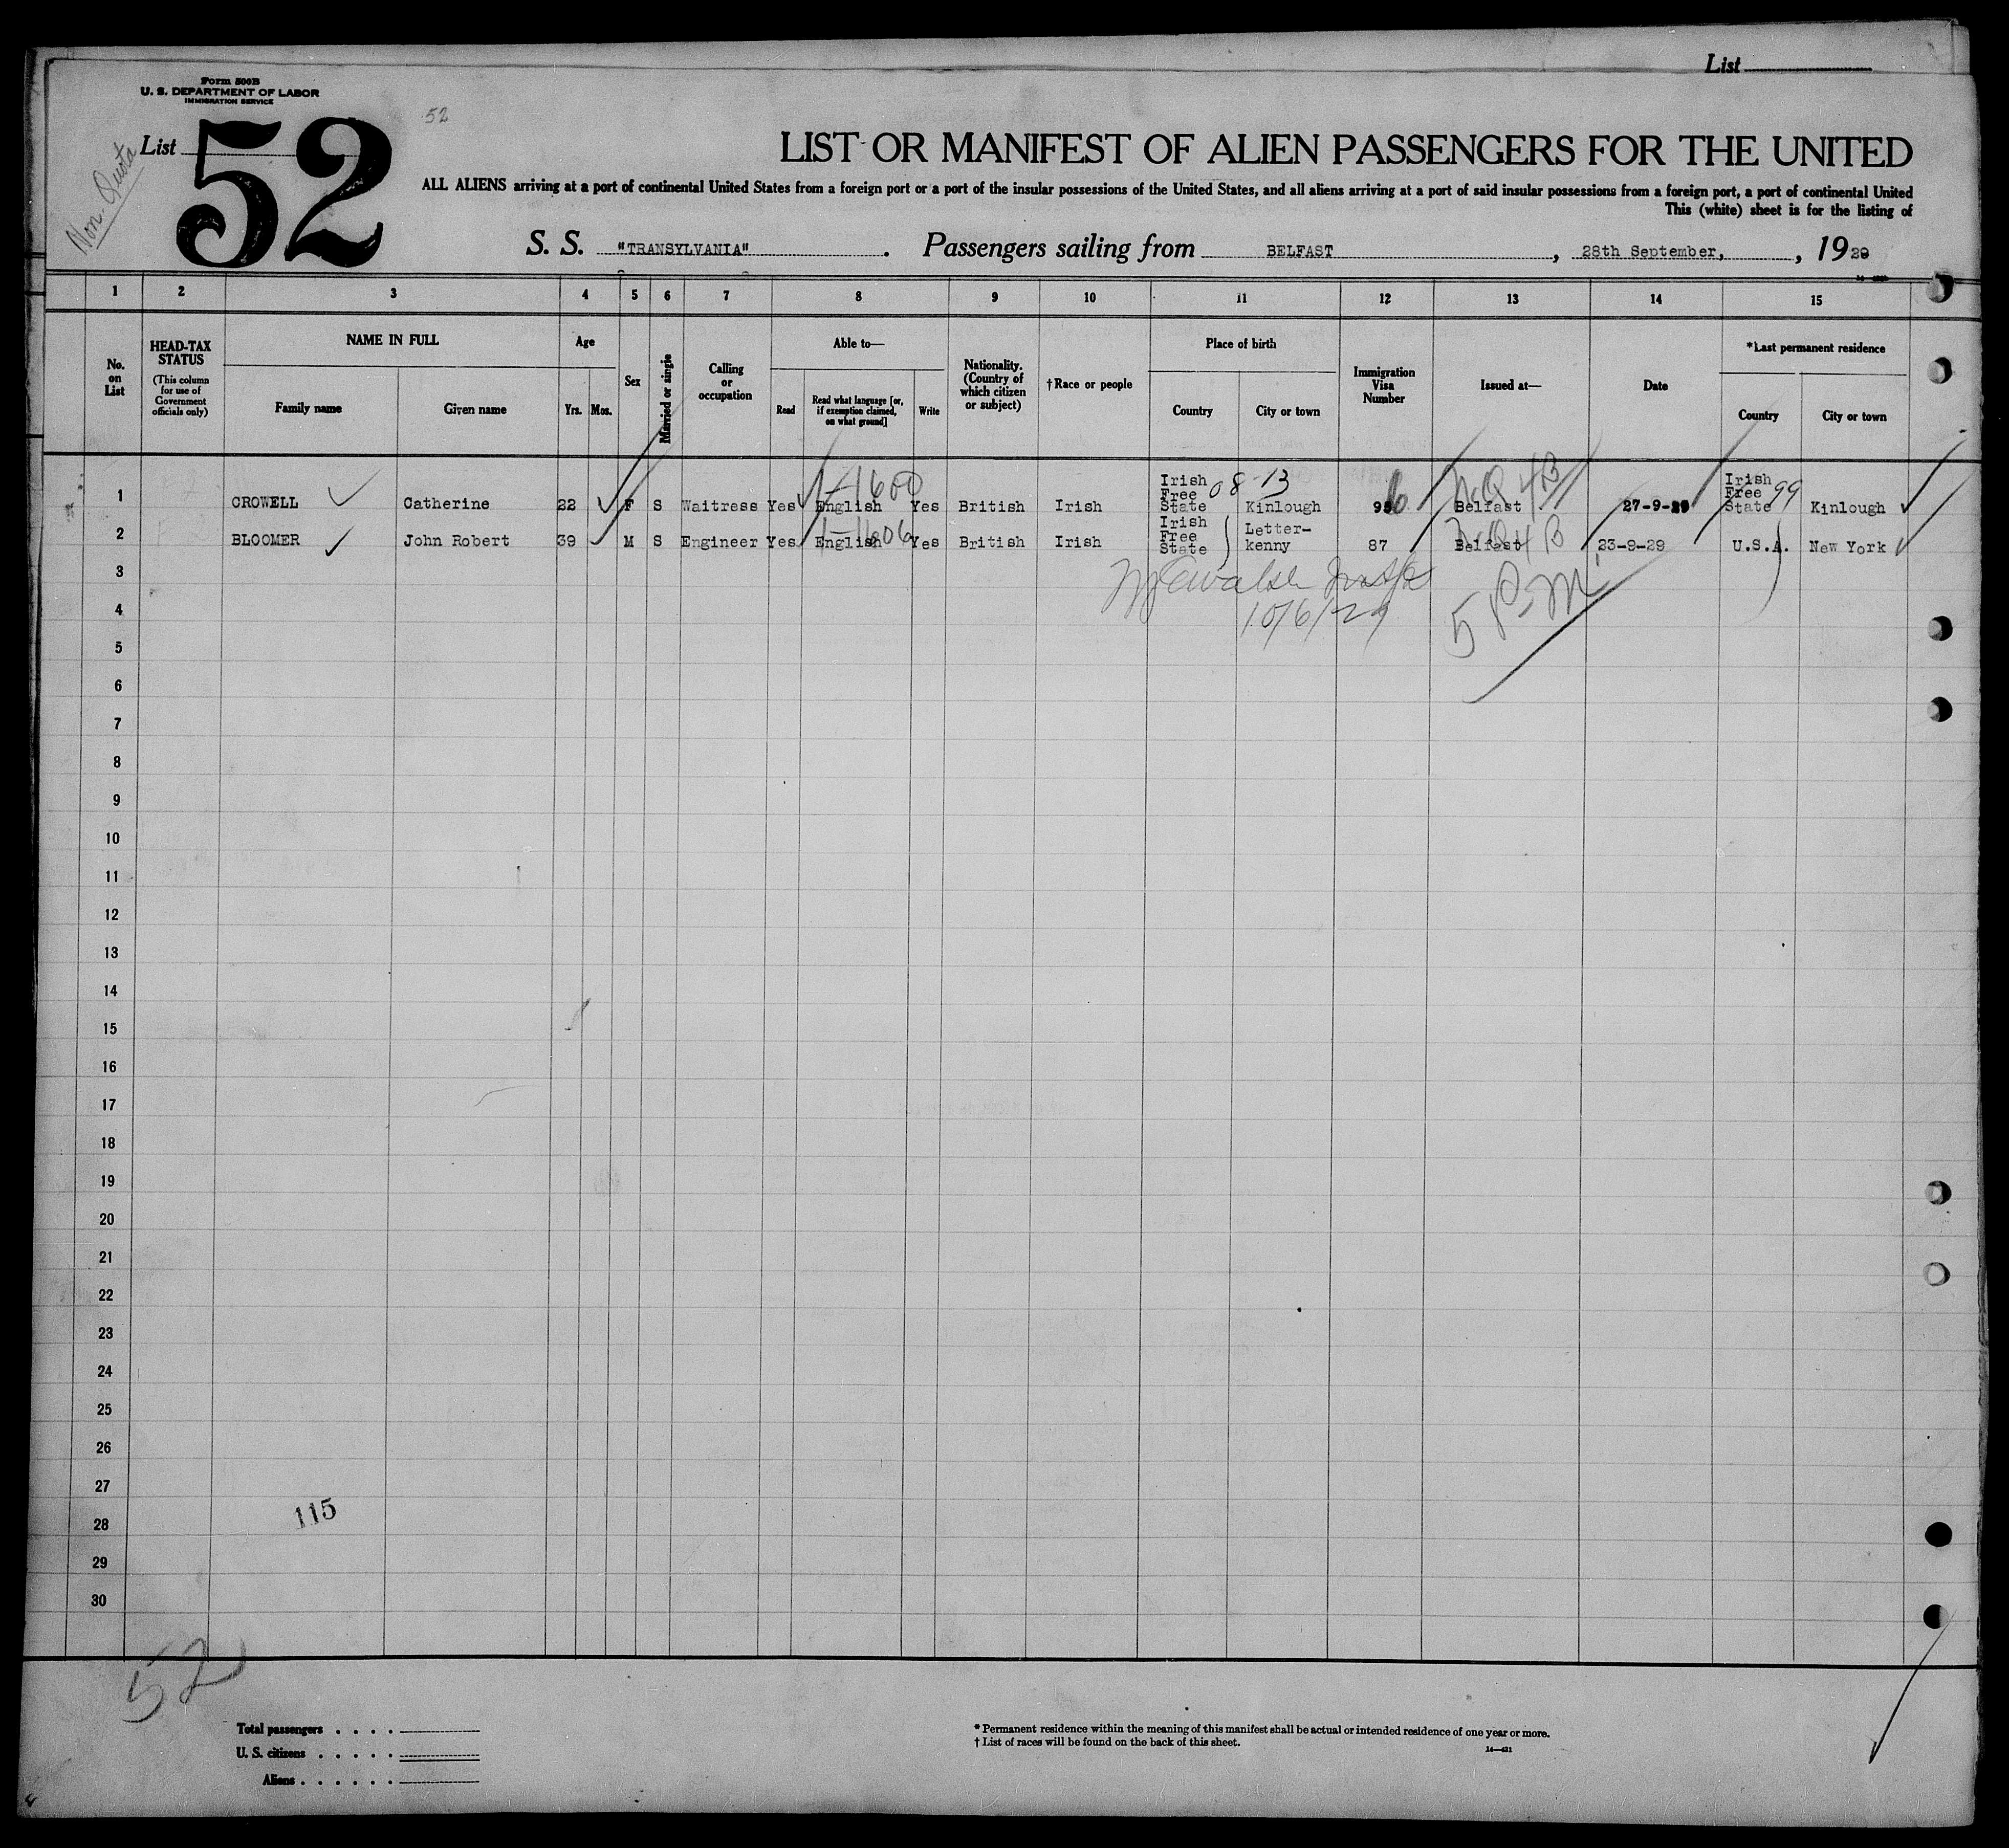 List
Form 500B
U. S. DEPARTMENT OF LABOR
IMMIGRATION SERVICE
52
List 52
Non-Quota
LIST OR MANIFEST OF ALIEN PASSENGERS FOR THE UNITED
ALL ALIENS arriving at a port of continental United States from a foreign port or a port of the insular possessions of the United States, and all aliens arriving at a port of said insular possessions from a foreign port, a port of continental United
This (white) sheet is for the listing of
S. S. "TRANSYLVANIA". Passengers sailing from BELFAST, 28th September, , 1929
1 2 3 4 5 6 7 8 9 10 11 12 13 14 15
No. on List
HEAD-TAX STATUS (This column for use of Government officials only)
NAME IN FULL
Family name Given name
Age
Yrs. Mos.
Sex
Married or single
Calling or occupation
Able to—
Read Read what language [or, if exemption claimed, on what ground] Write
Nationality. (Country of which citizen or subject)
†Race or people
Place of birth
Country City or town
Immigration Visa Number
Issued at—
Date
*Last permanent residence
Country City or town
1 CROWELL Catherine 22 F S Waitress Yes English Yes British Irish Irish Free State 08-13 Kinlough 956 Belfast 27-9-29 Irish Free State 99 Kinlough
2 BLOOMER John Robert 39 M S Engineer Yes English Yes British Irish Irish Free State Letter-kenny 87 Belfast 23-9-29 U.S.A. New York
3
10/6/29
5 P.M.
4
5
6
7
8
9
10
11
12
13
14
15
16
17
18
19
20
21
22
23
24
25
26
27
115
28
29
30
52
Total passengers . . . .
U. S. citizens . . . . .
Aliens . . . . . .
* Permanent residence within the meaning of this manifest shall be actual or intended residence of one year or more.
† List of races will be found on the back of this sheet.